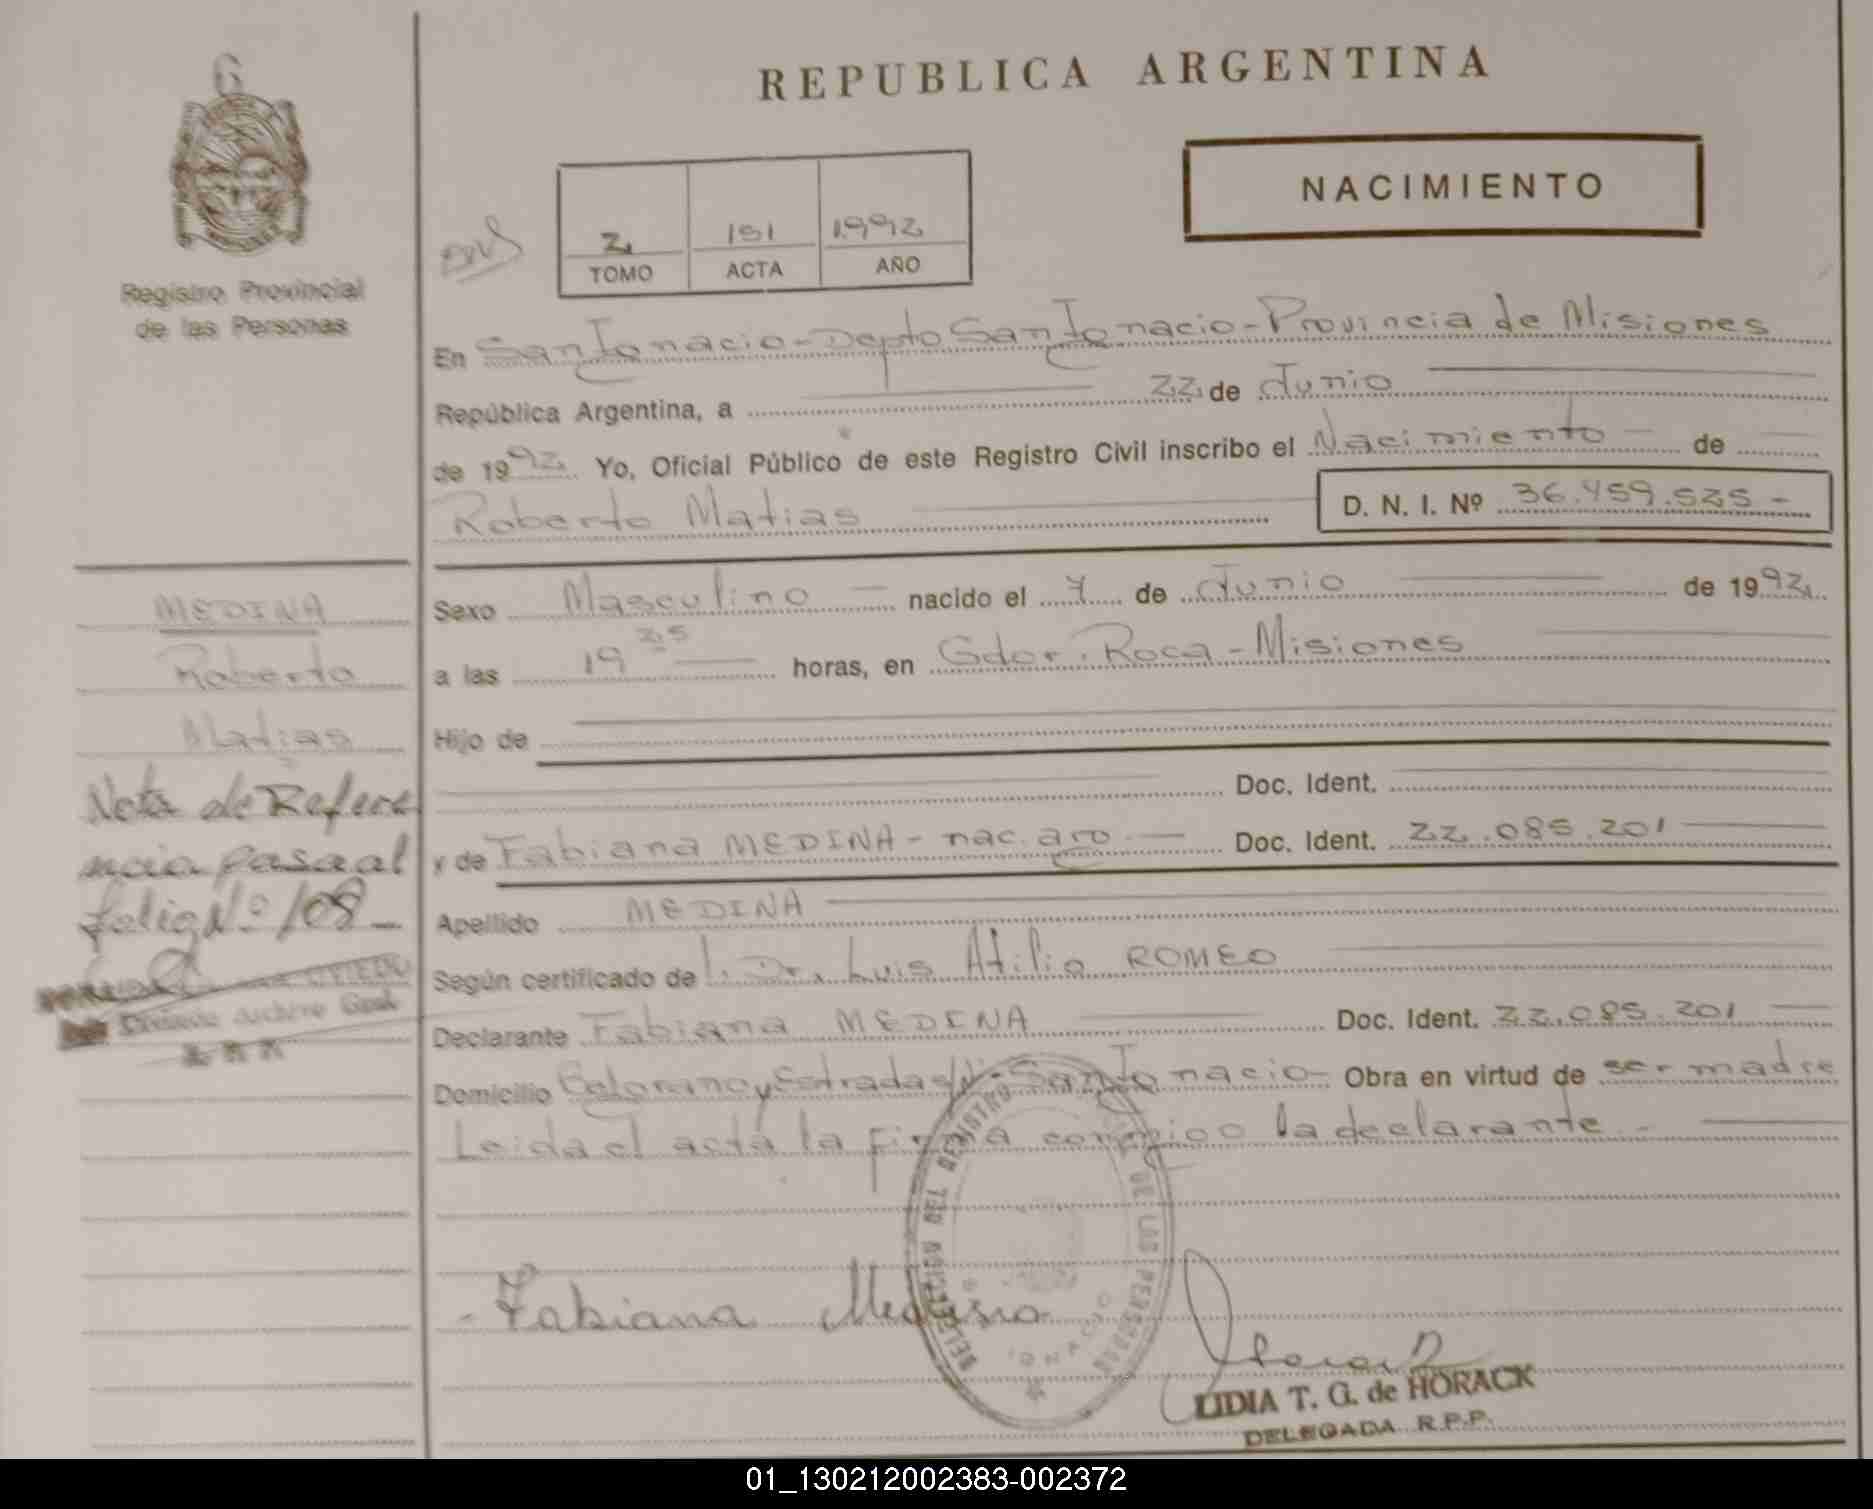 REPUBLICA ARGENTINA
NACIMIENTO
Registro Provincial
de las Personas
2 151 1992
TOMO ACTA AÑO
En San Ignacio - Depto San Ignacio - Provincia de Misiones
República Argentina, a 22 de Junio
de 1992 Yo, Oficial Público de este Registro Civil inscribo el Nacimiento de
Roberto Matias D. N. I. Nº 36.459.525 -
MEDINA
Roberto
Matias
Sexo Masculino nacido el 7 de Junio de 1992
a las 19 25 horas, en Gdor. Roca - Misiones
Hijo de
Doc. Ident.
y de Fabiana MEDINA - nac. arg Doc. Ident. 22.085.201
Apellido MEDINA
Según certificado de Dr. Luis Atilio ROMEO
Declarante Fabiana MEDINA Doc. Ident. 22.085.201
Domicilio Belgrano y Estrada s/n - San Ignacio - Obra en virtud de ser madre
Leida el acta la firma conmigo la declarante. -
Nota de Referen
ncia pasa al
folio Nº 108 -
División Archivo Gral
Fabiana Medina
DELEGACION DEL REGISTRO DE LAS PERSONAS
IGNACIO
LIDIA T. G. de HORACK
DELEGADA R.P.P.
01_130212002383-002372